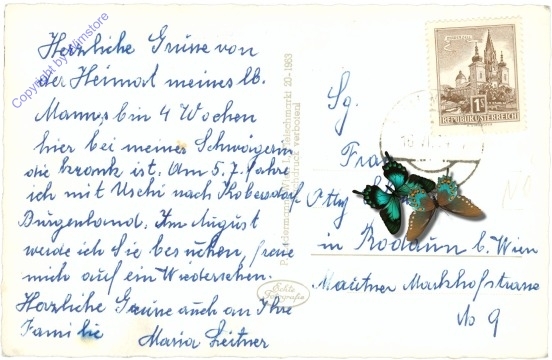 Herzliche Grüsse von
der Heimat meines lb.
Mannes bin 4 Wochen
hier bei meiner Schwägerin
die krank ist. Am 5.7. fahre
ich mit Uschi nach Kobersdorf
Burgenland. Im August
werde ich Sie besuchen, freue
mich auf ein Wiedersehen.
Herzliche Grüsse auch an Ihre
Familie Maria Leitner
Copyright by Filmstore
20-1963
Echte
Fotografie
MARIAZELL
1S
REPUBLIK ÖSTERREICH
Sg.
Frau
in Rodaun b. Wien
Mautner Markhofstrasse
No 9